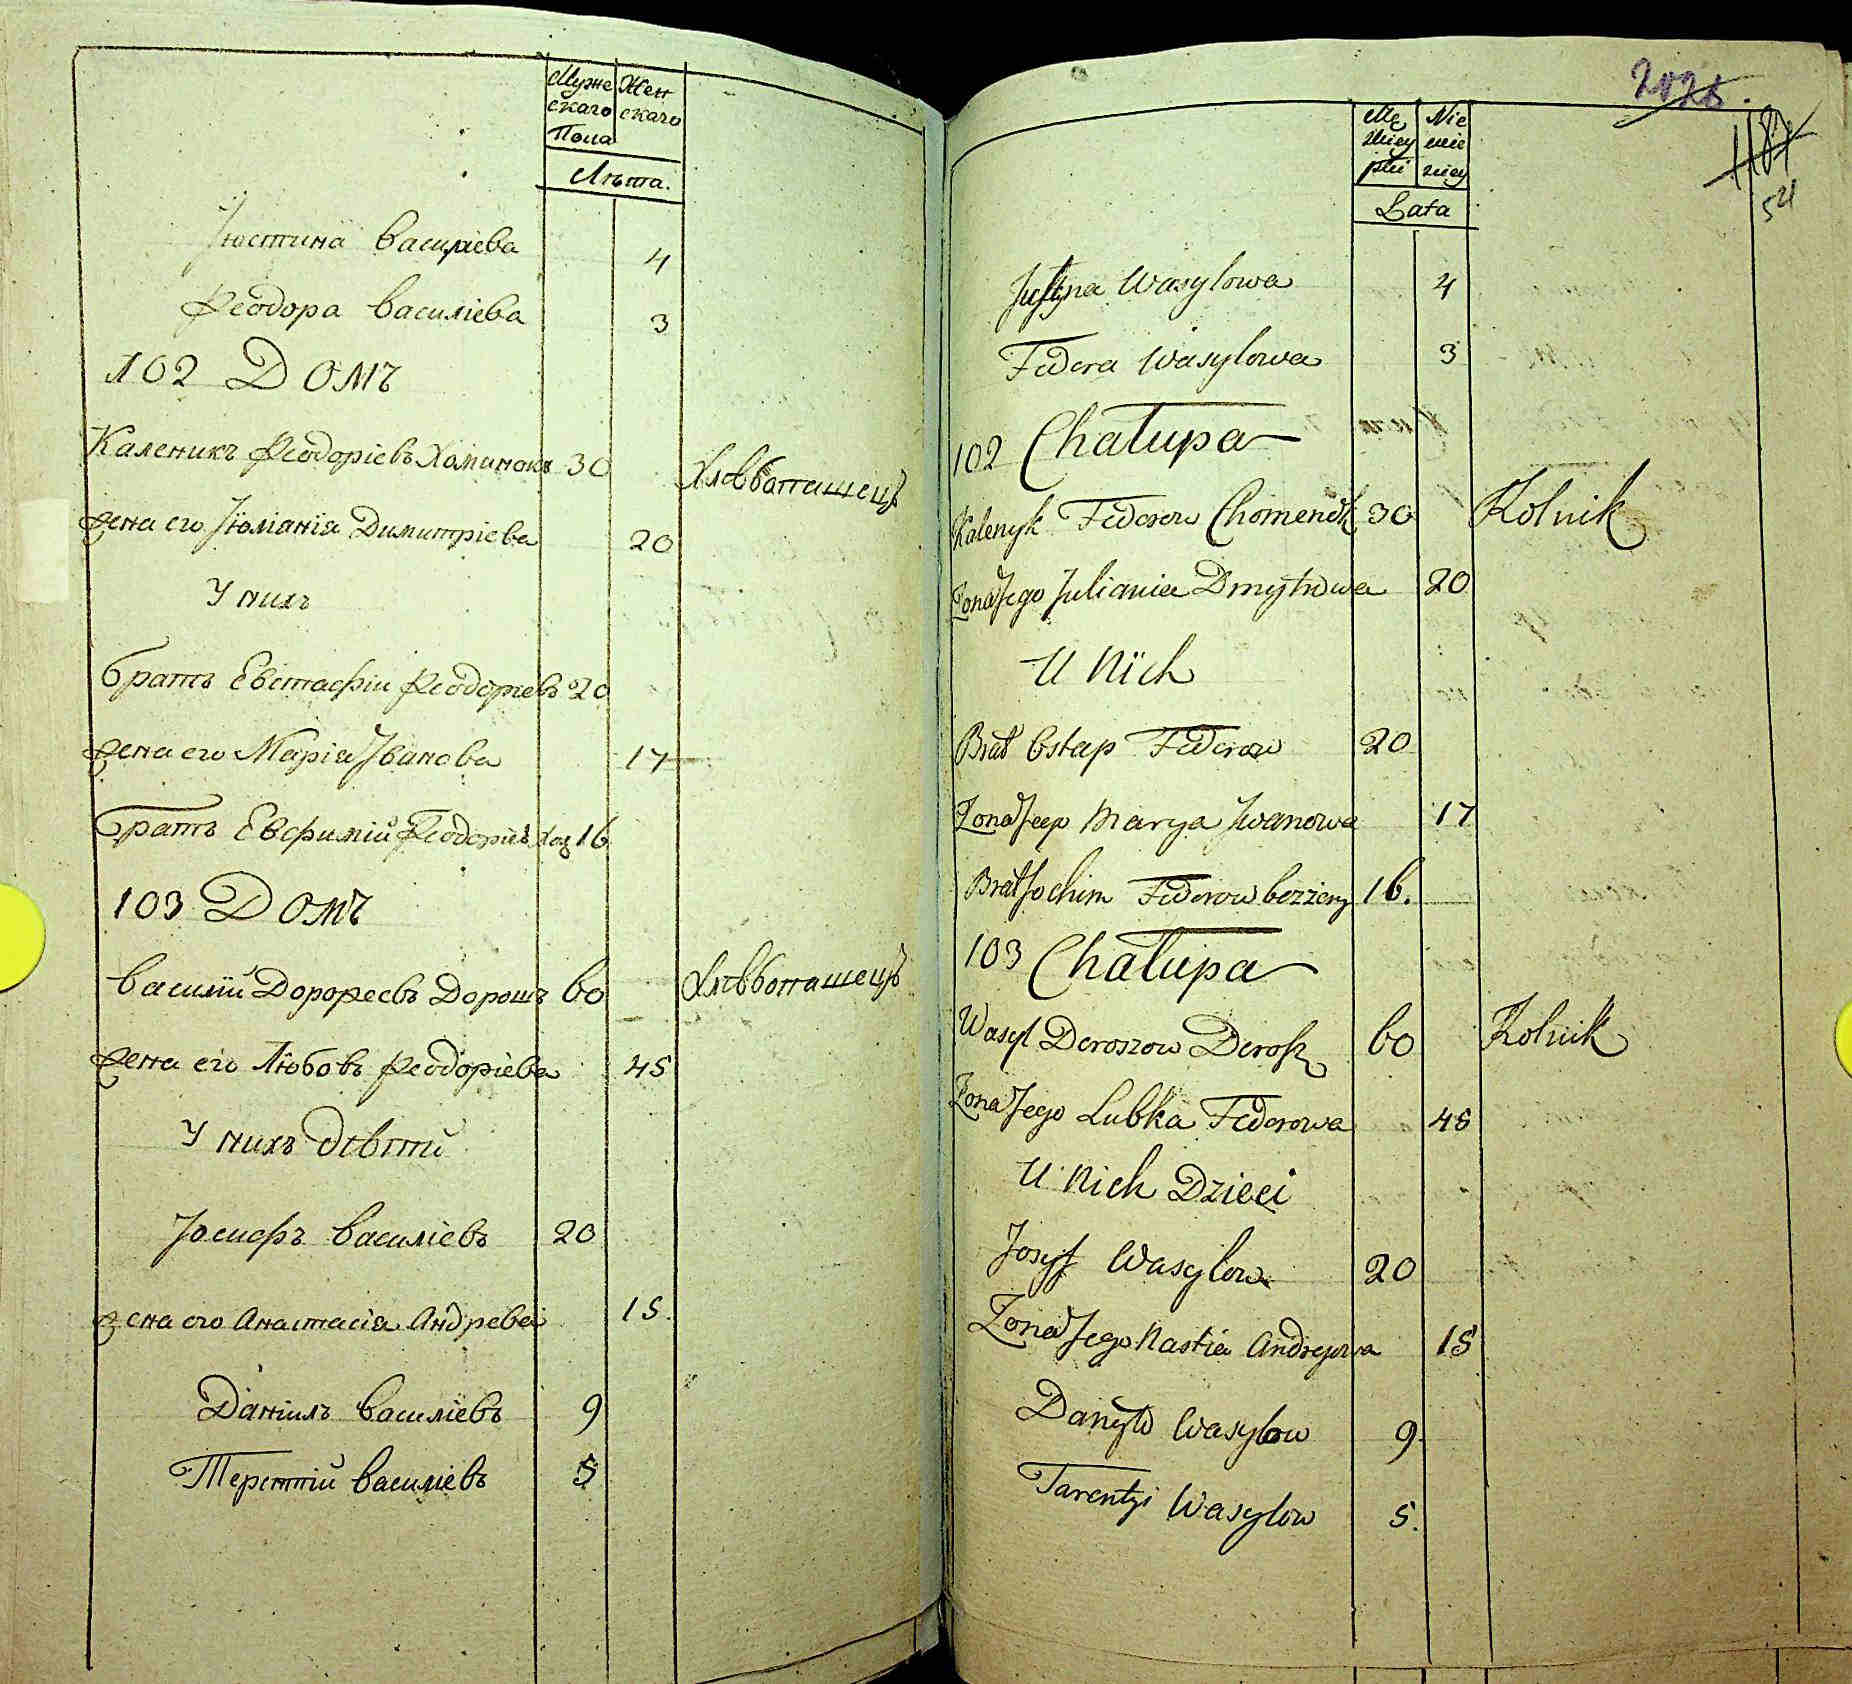 Муже Жен
скаго скаго
Пола
Лѣта.
Іюстина Василіева 4
Феодора Василіева 3
102 Домъ
Каленикъ Феодоріевъ Хоминокъ 30 Хлѣбопашецъ
Жена его Іюліанія Димитріева 20
У нихъ
Братъ Евстафіи Феодоріевъ 20
Жена его Марія Іванова 17
Братъ Евфимій Феодоріевъ хол 16
103 Домъ
Василій Дорофеевъ Дорошъ 60 Хлѣбопашецъ
Жена его Любовь Феодоріева 45
У нихъ дѣти
Іосифъ Василіевъ 20
Жена его Анастасія Андреева 15
Даніилъ Василіевъ 9
Терентій Василіевъ 5
2028.
1187
54
Lata
Justyna Wasylowa 4
Fedora Wasylowa 3
102 Chałupa
Kalenyk Fedorow Chomenok 30 Rolnik
Żona Jego Juliania Dmytrowa 20
U Nich
Brat Ostap Fedorow 20
Żona Jego Marya Jwanowa 17
Brat Jochim Fedorow bezżeny 16.
103 Chałupa
Wasyl Doroszow Dorosz 60 Rolnik
Żona Jego Lubka Fedorowa 45
U Nich Dzieci
Josyf Wasylow 20
Żona Jego Nastia Andrejowa 15
Danyło Wasylow 9.
Tarentyi Wasylow 5.